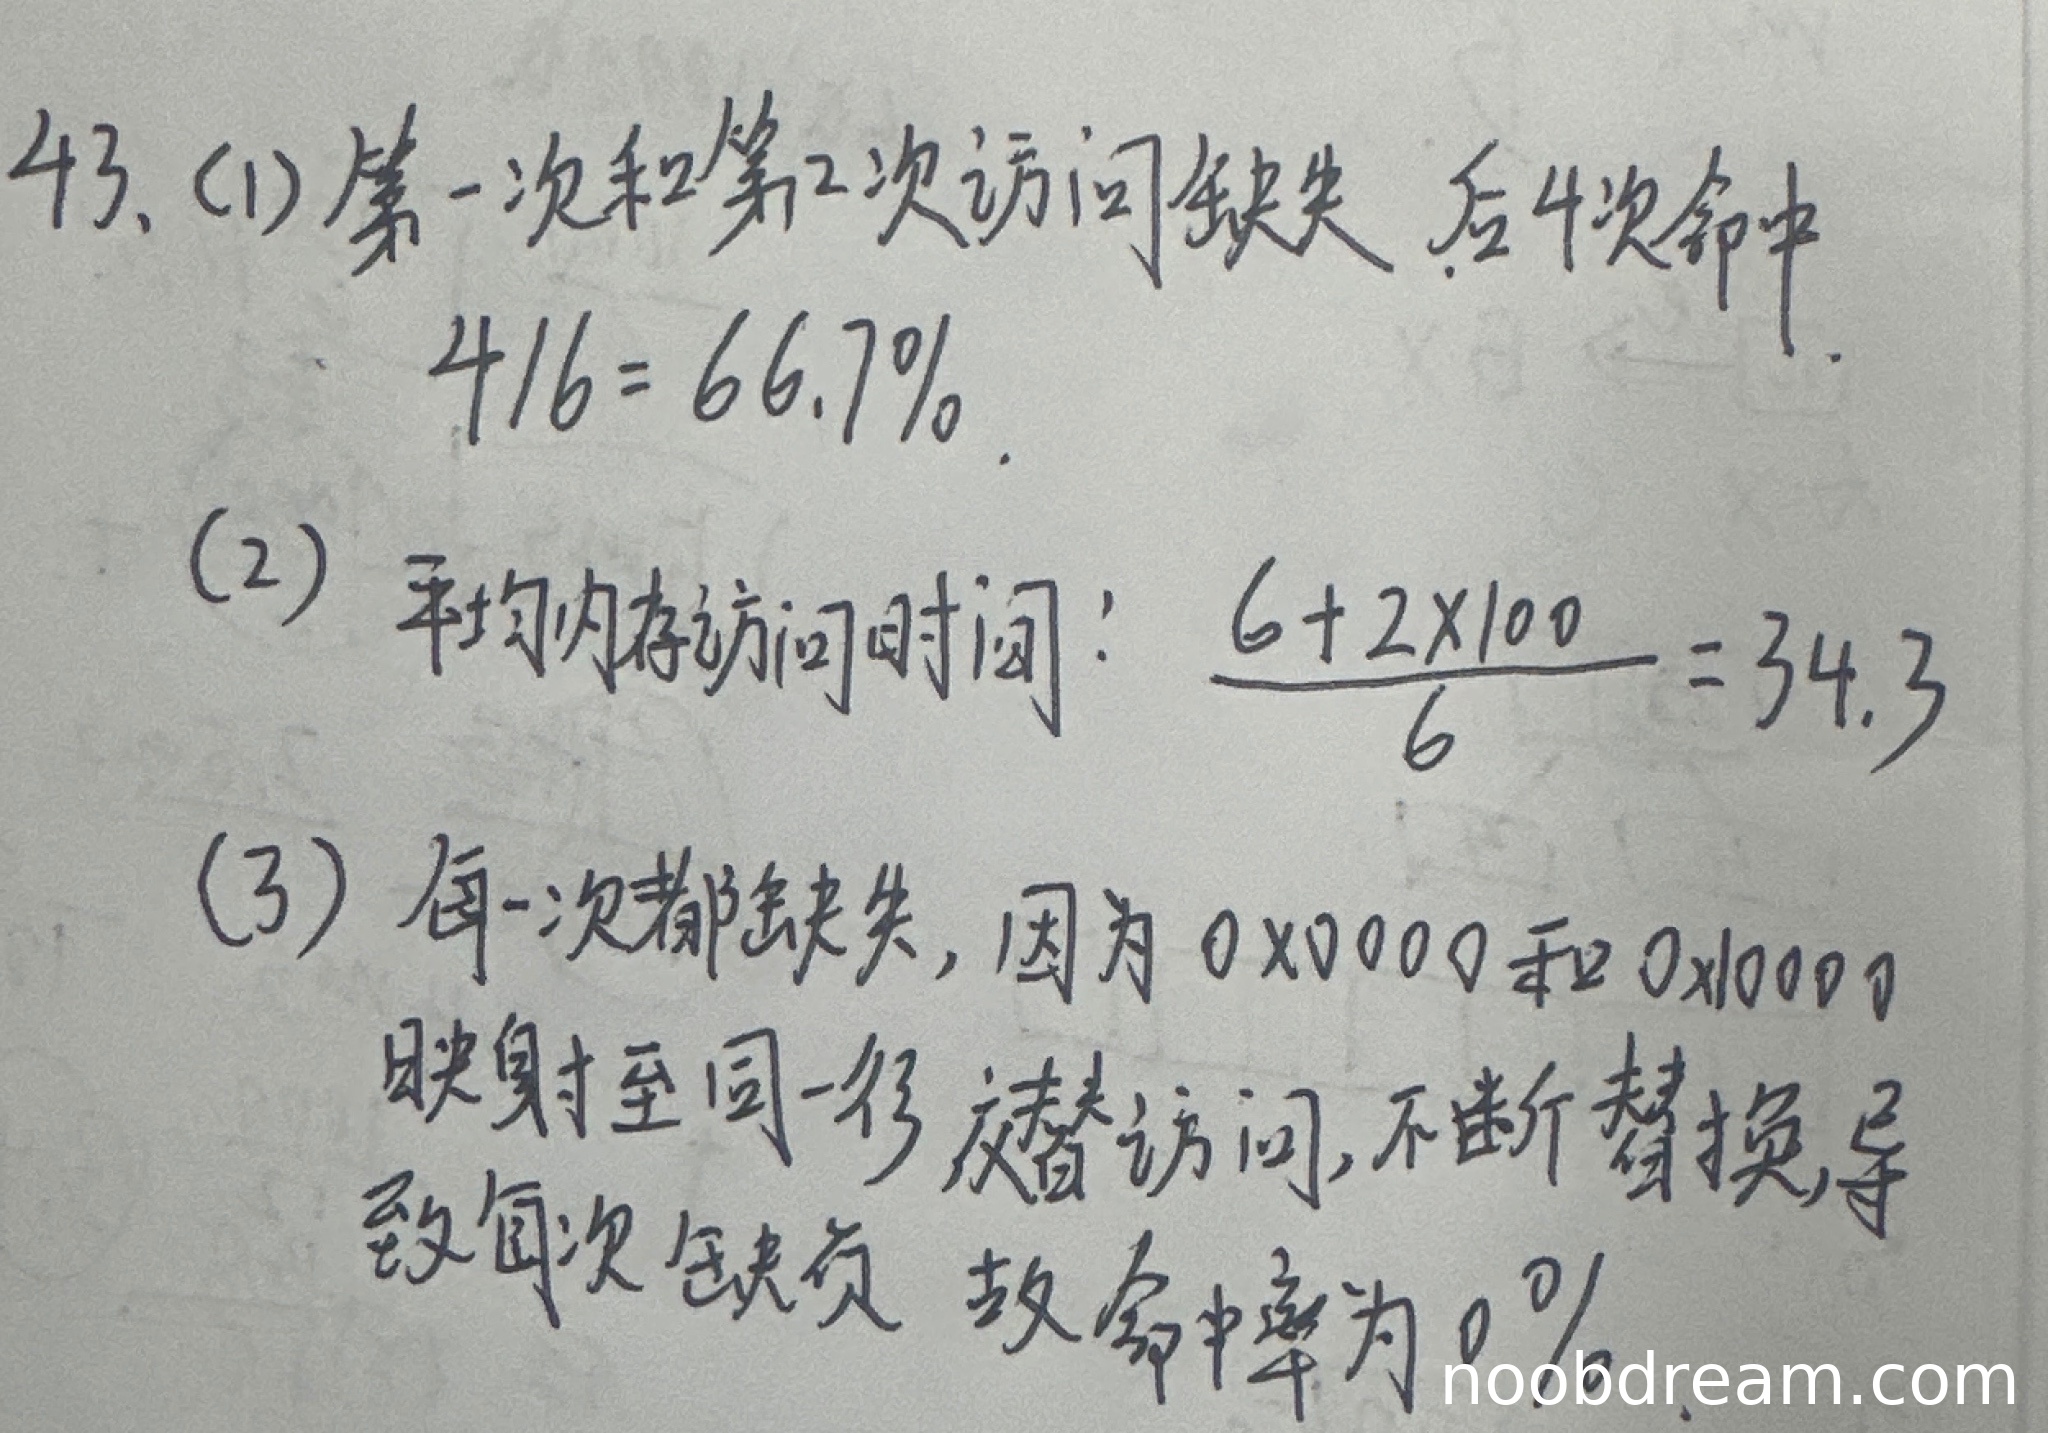 43、(1) 第一次和第2次访问缺失 后4次命中.
4/6 = 66.7%.
(2) 平均内存访问时间: (6+2×100)/6 = 34.3
(3) 每一次都缺失, 因为 0x0000 和 0x10000
映射至同一行 交替访问, 不断替换, 导
致每次缺页 故命中率为0%.
noobdream.com